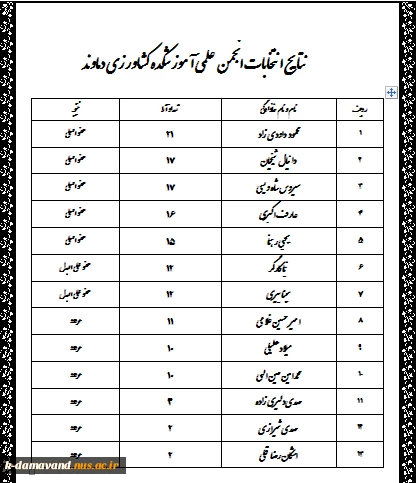 نتایج انتخابات انجمن علمی آموزشکده کشاورزی دماوند
ردیف نام و نام خانوادگی تعداد آرا نتیجه
۱ محمود داودی زاد ۲۱ عضو اصلی
۲ دانیال شیخیان ۱۷ عضو اصلی
۳ سیروس شاه ویسی ۱۷ عضو اصلی
۴ عارف اکبری ۱۶ عضو اصلی
۵ یحیی رهنما ۱۵ عضو اصلی
۶ کارگر ۱۲ عضو علی البدل
۷ سینا پیری ۱۲ عضو علی البدل
۸ امیرحسین غلامی ۱۱
۹ میلاد ۱۰
۱۰ محمدامین معین الهی ۱۰
۱۱ مهدی دلیری زاده ۳
۱۲ مهدی شیرازی ۲
۱۳ اشکان رضا قلی ۲
k-damavand.nus.ac.ir